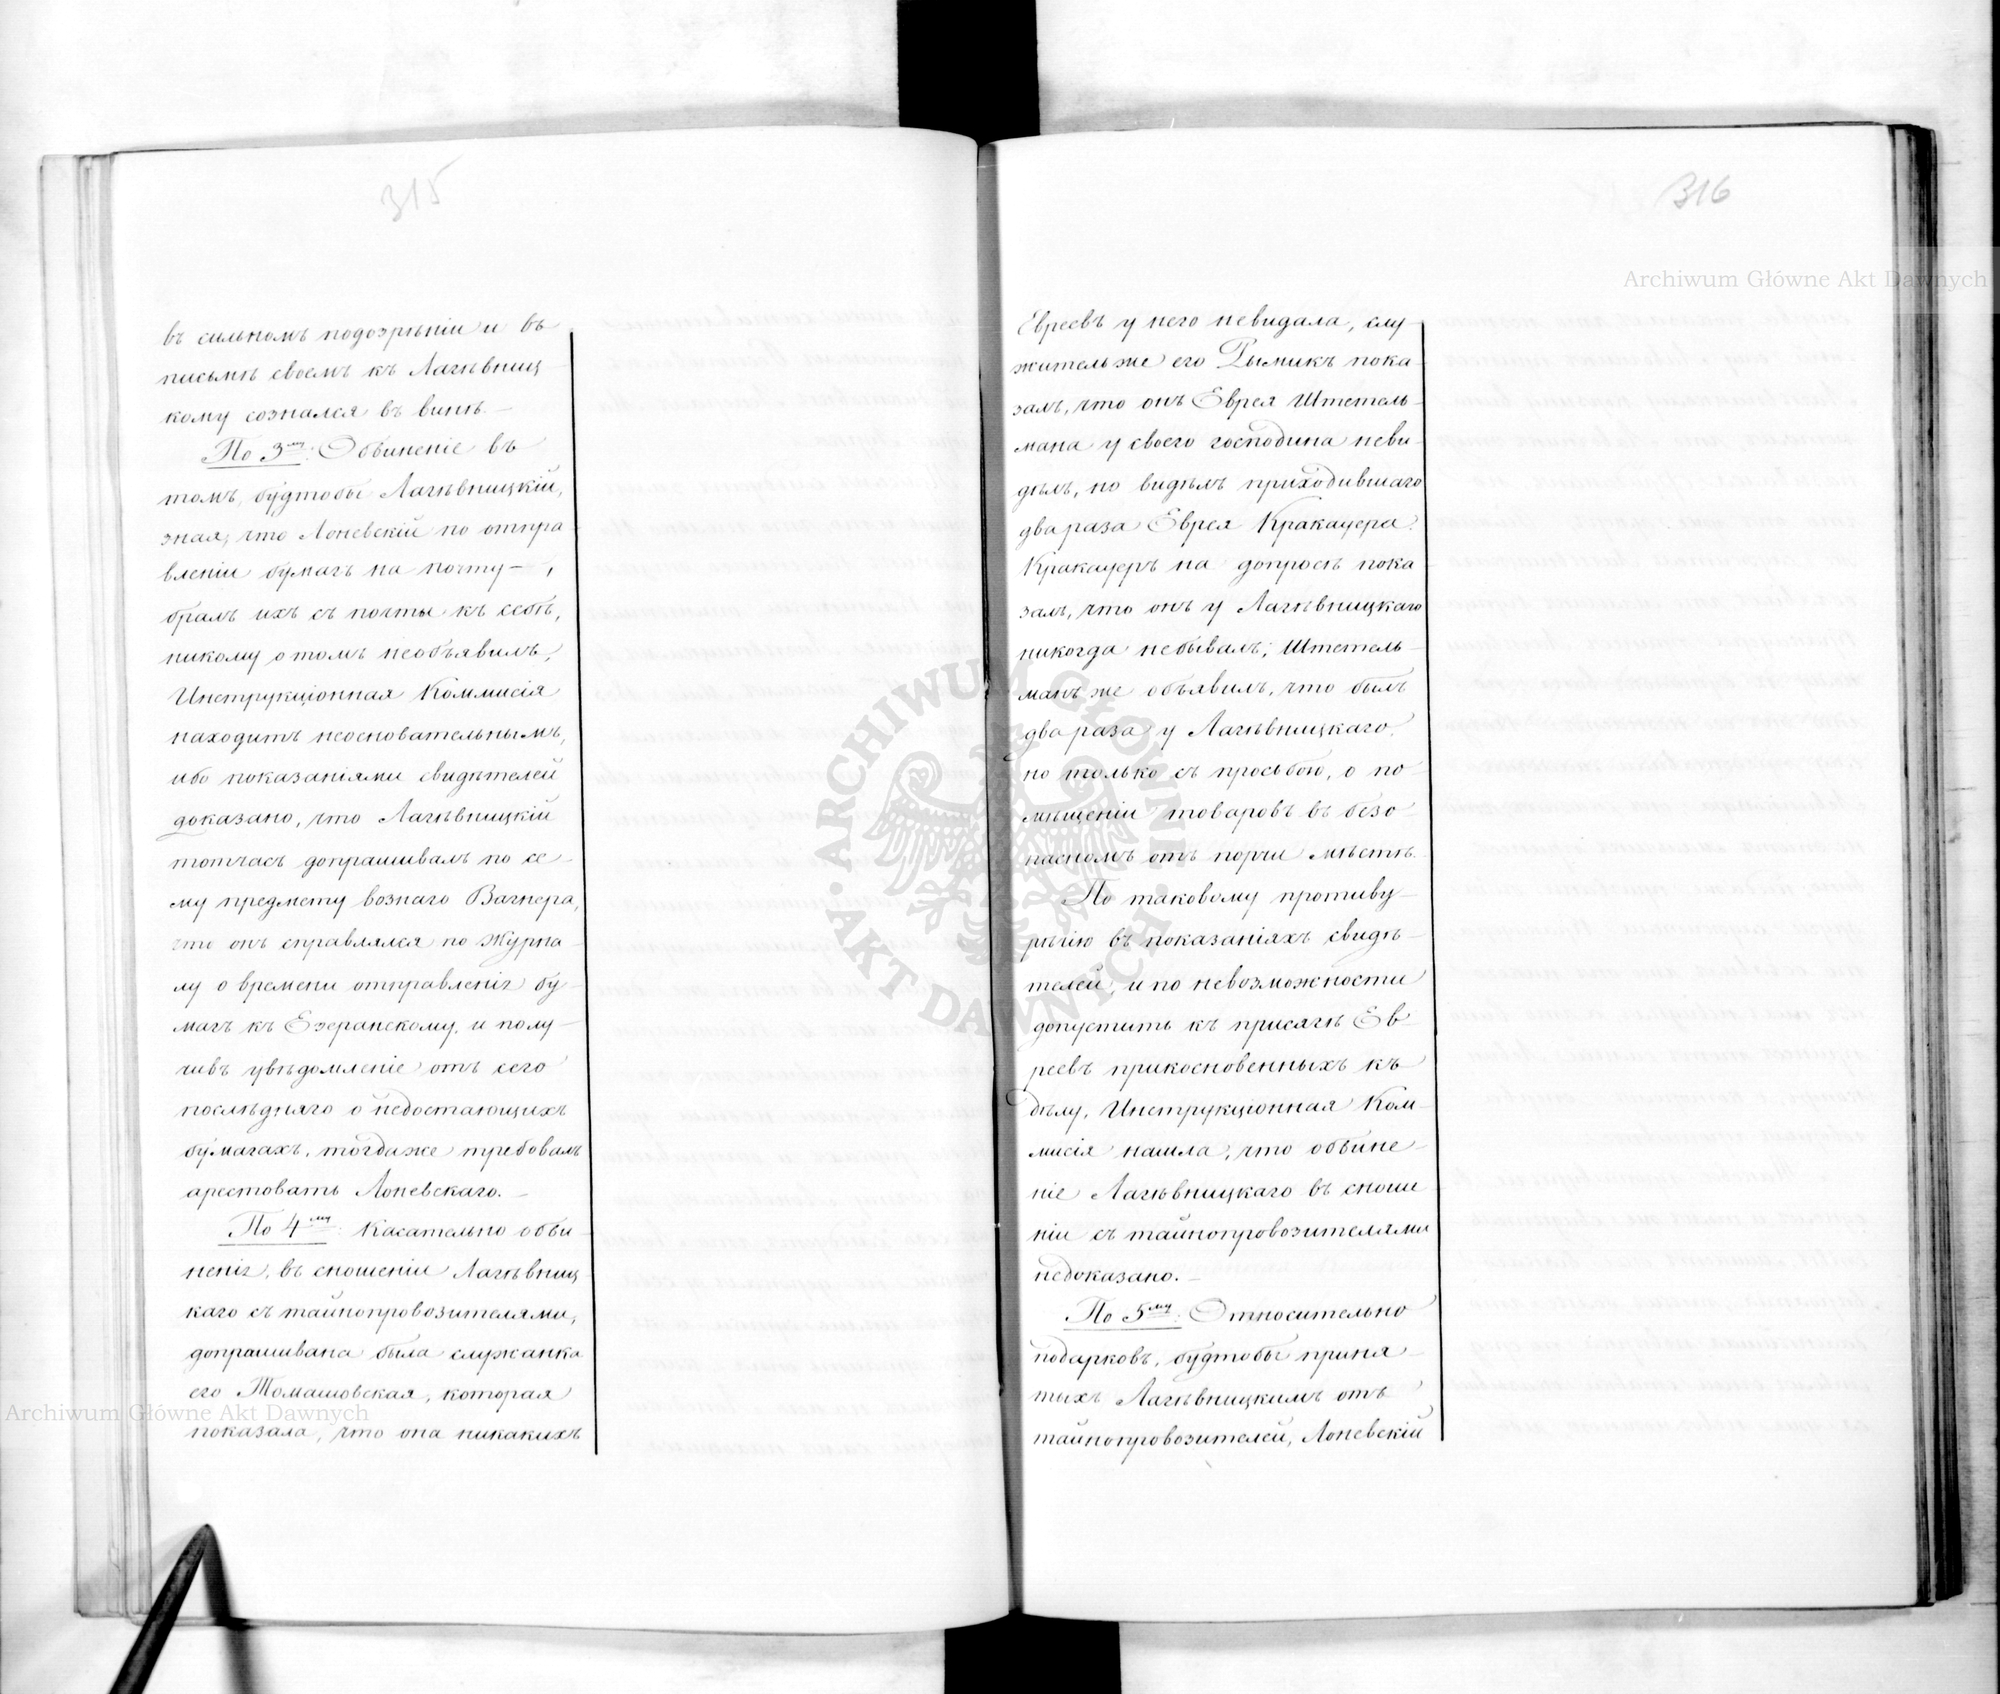 315
въ сильномъ подозрѣніи и въ
письмѣ своемъ къ Лагѣвниц
кому сознался въ винѣ. —
По 3му: Обвиненіе въ
томъ, будтобы Лагѣвницкій,
зная, что Лоневскій по отпра
вленіи бумагъ на почту —,
бралъ ихъ съ почты къ себѣ,
никому о томъ необъявилъ,
Инструкціонная Коммисія
находитъ неосновательнымъ,
ибо показаніями свидѣтелей
доказано, что Лагѣвницкій
тотчасъ допрашивалъ по се-
му предмету вознаго Вагнера,
что онъ справлялся по журна-
лу о времени отправленія бу-
магъ къ Езеранскому, и полу-
чивъ увѣдомленіе отъ сего
послѣдняго о недостающихъ
бумагахъ, тогдаже требовалъ
арестовать Лоневскаго. —
По 4му: Касательно обви-
ненія, въ сношеніи Лагѣвниц
каго съ тайнопровозителями,
допрашивана была служанка
его Томашовская, которая
показала, что она никакихъ
316
Евреевъ у него невидала, слу-
жительже его Рымикъ пока-
залъ, что онъ Еврея Штетель-
мана у своего господина неви-
дѣлъ, но видѣлъ приходившаго
два раза Еврея Кракауера.
Кракауеръ на допросѣ пока
залъ, что онъ у Лагѣвницкаго
никогда небывалъ; Штетель-
манъ же объявилъ, что былъ
два раза у Лагѣвницкаго,
но только съ просьбою, о по-
мѣщеніи товаровъ въ безо-
пасномъ отъ порчи мѣстѣ.
По таковому противу-
рѣчію въ показаніяхъ свидѣ-
телей, и по невозможности
допустить къ присягѣ Ев-
реевъ прикосновенныхъ къ
дѣлу, Инструкціонная Ком-
мисія нашла, что обвине-
ніе Лагѣвницкаго въ сноше
ніи съ тайнопровозителями
недоказано. —
По 5му: Относительно
подарковъ, будтобы приня-
тыхъ Лагѣвницкимъ отъ
тайнопровозителей, Лоневскій
Archiwum Główne Akt Dawnych
Archiwum Główne Akt Dawnych
ARCHIWUM GŁÓWNE AKT DAWNYCH